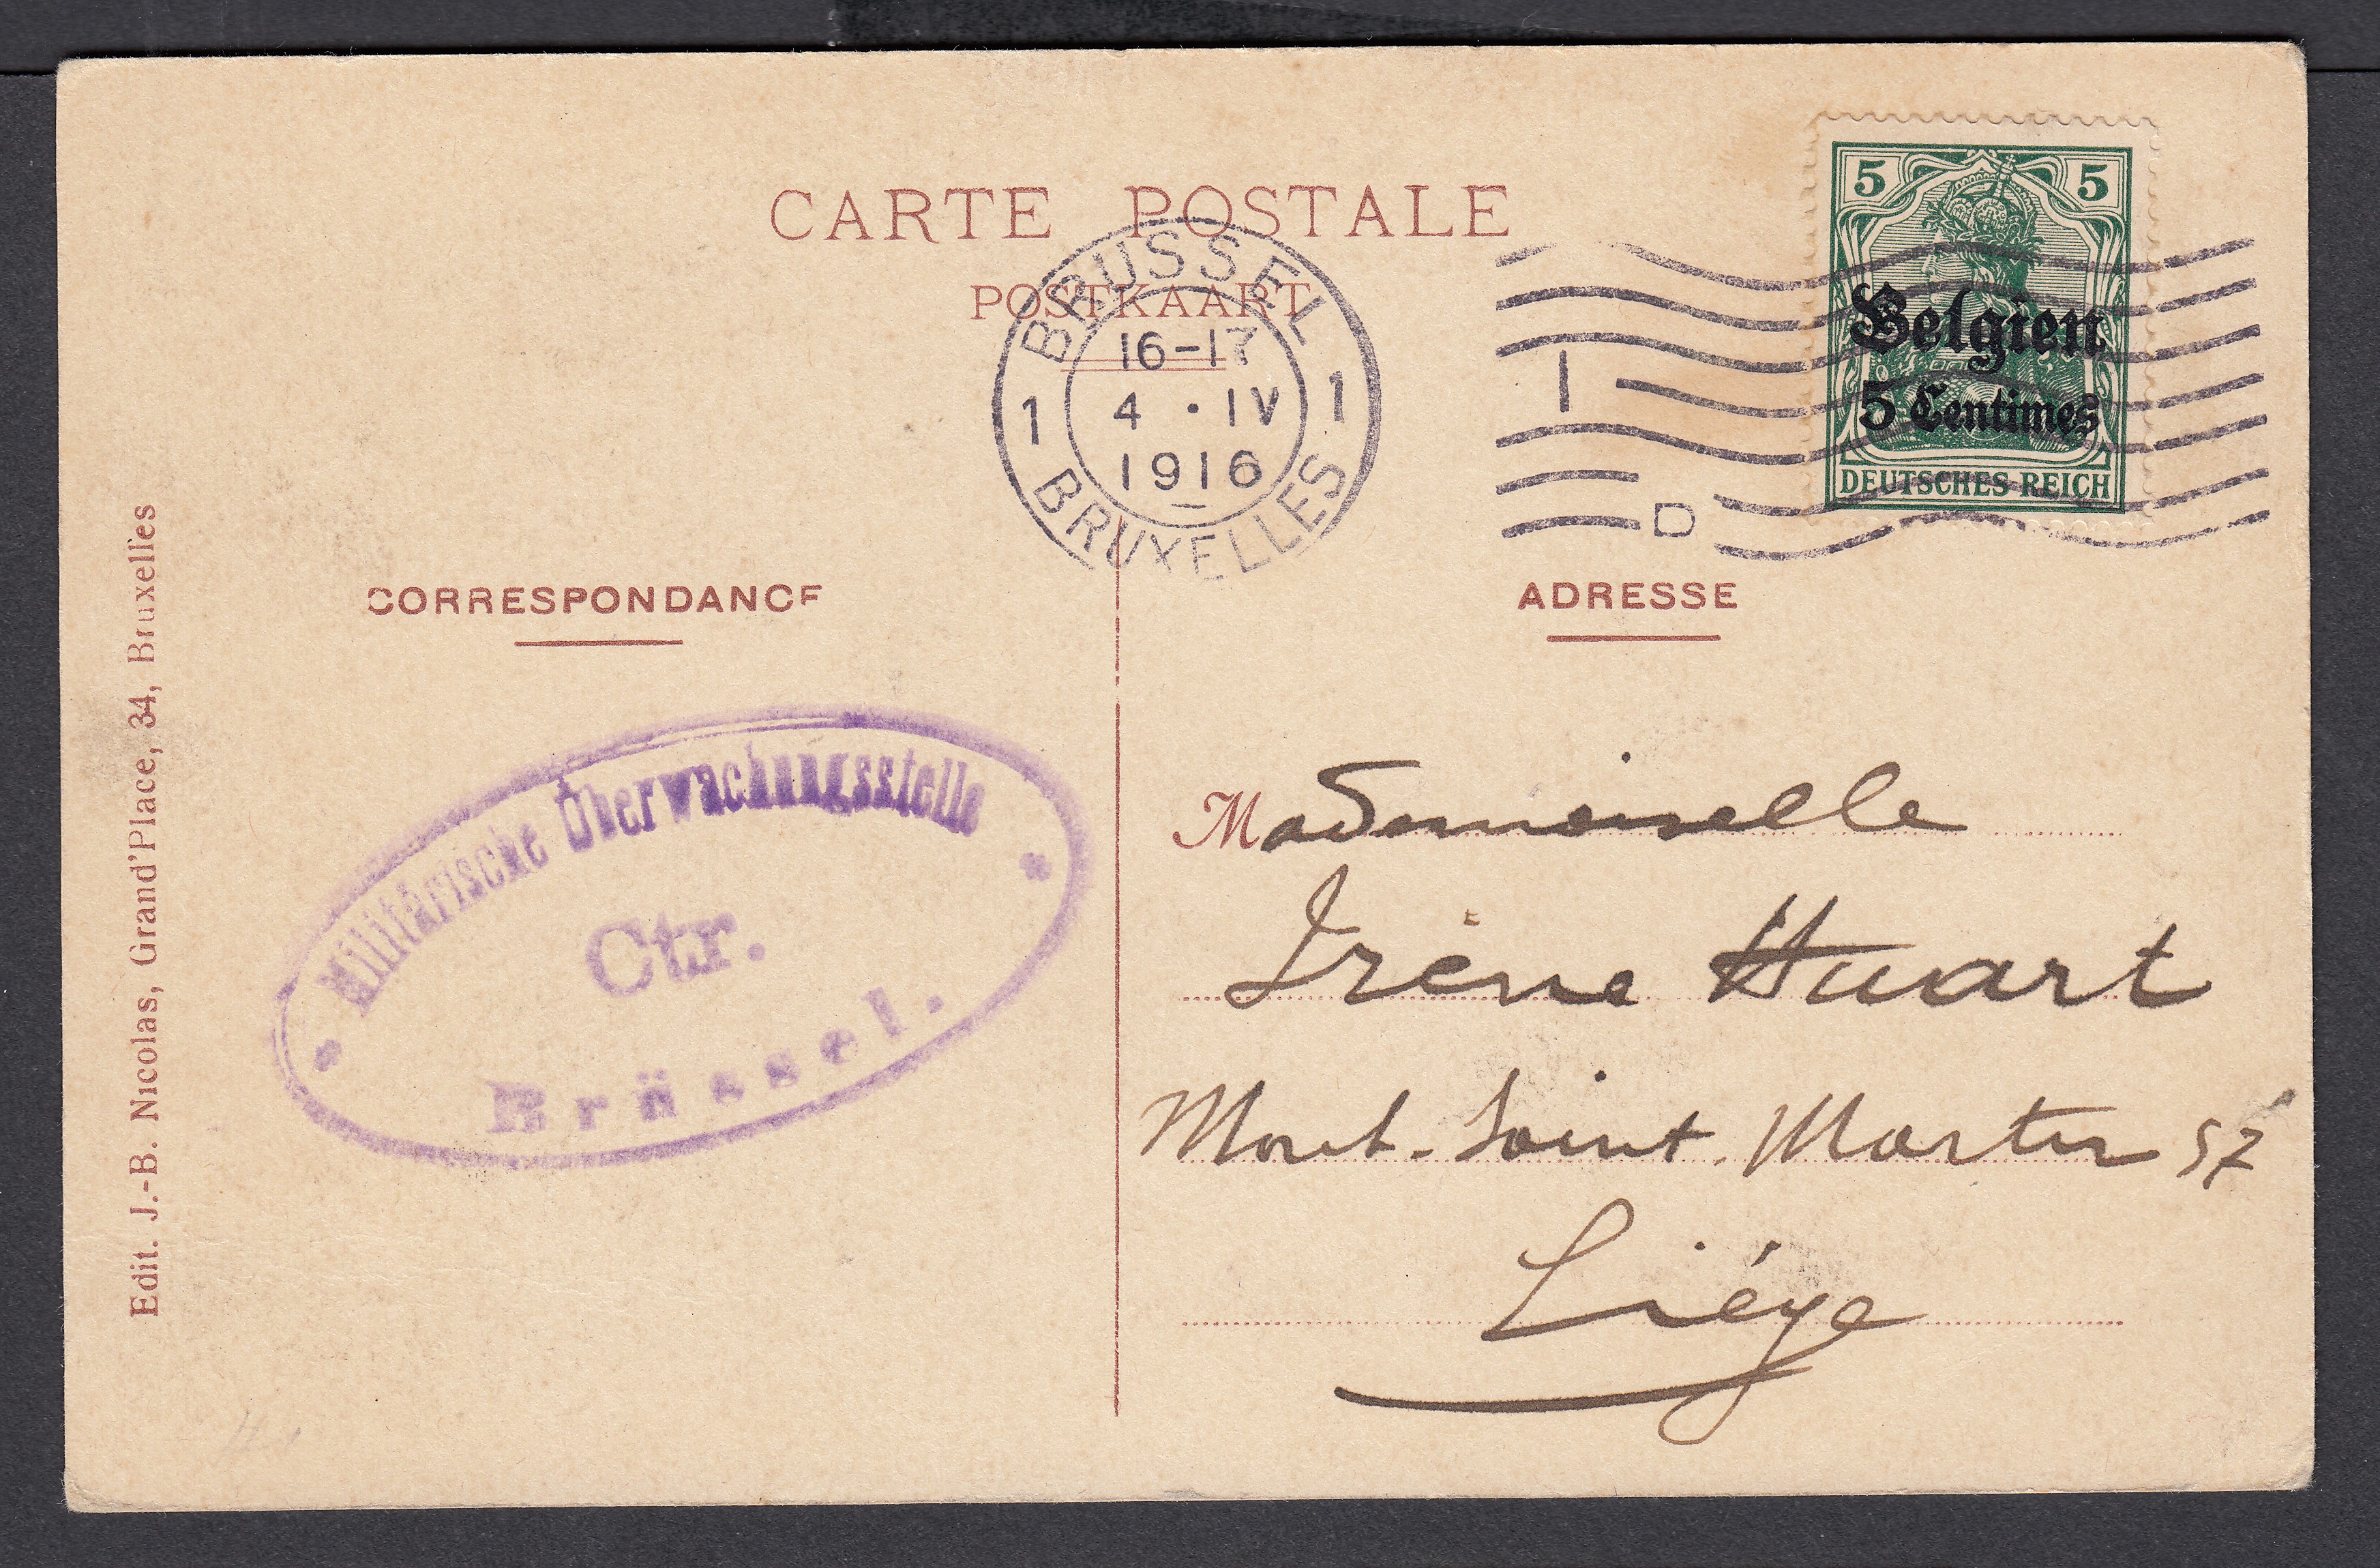 CARTE POSTALE
POSTKAART
5 5
Belgien
5 Centimes
DEUTSCHES REICH
BRUSSEL
16-17
1 4 · IV 1
1916
BRUXELLES
I
D
CORRESPONDANCE
ADRESSE
Edit. J.-B. Nicolas, Grand'Place, 34, Bruxelles
* Militärische Überwachungsstelle *
Ctr.
Brüssel.
Mademoiselle
Irène Huart
Mont-Saint-Martin 57
Liége